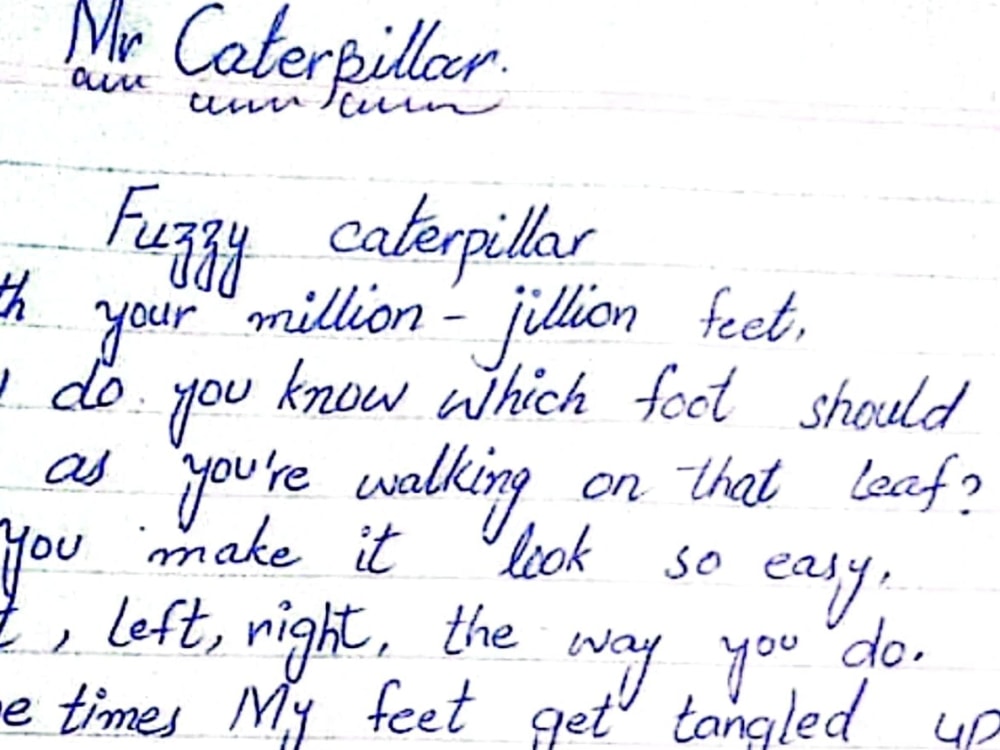 Mr Caterpillar.
Fuzzy caterpillar
your million - jillion feet,
do you know which foot should
as you're walking on that leaf?
you make it look so easy,
, left, right, the way you do.
times My feet get tangled up